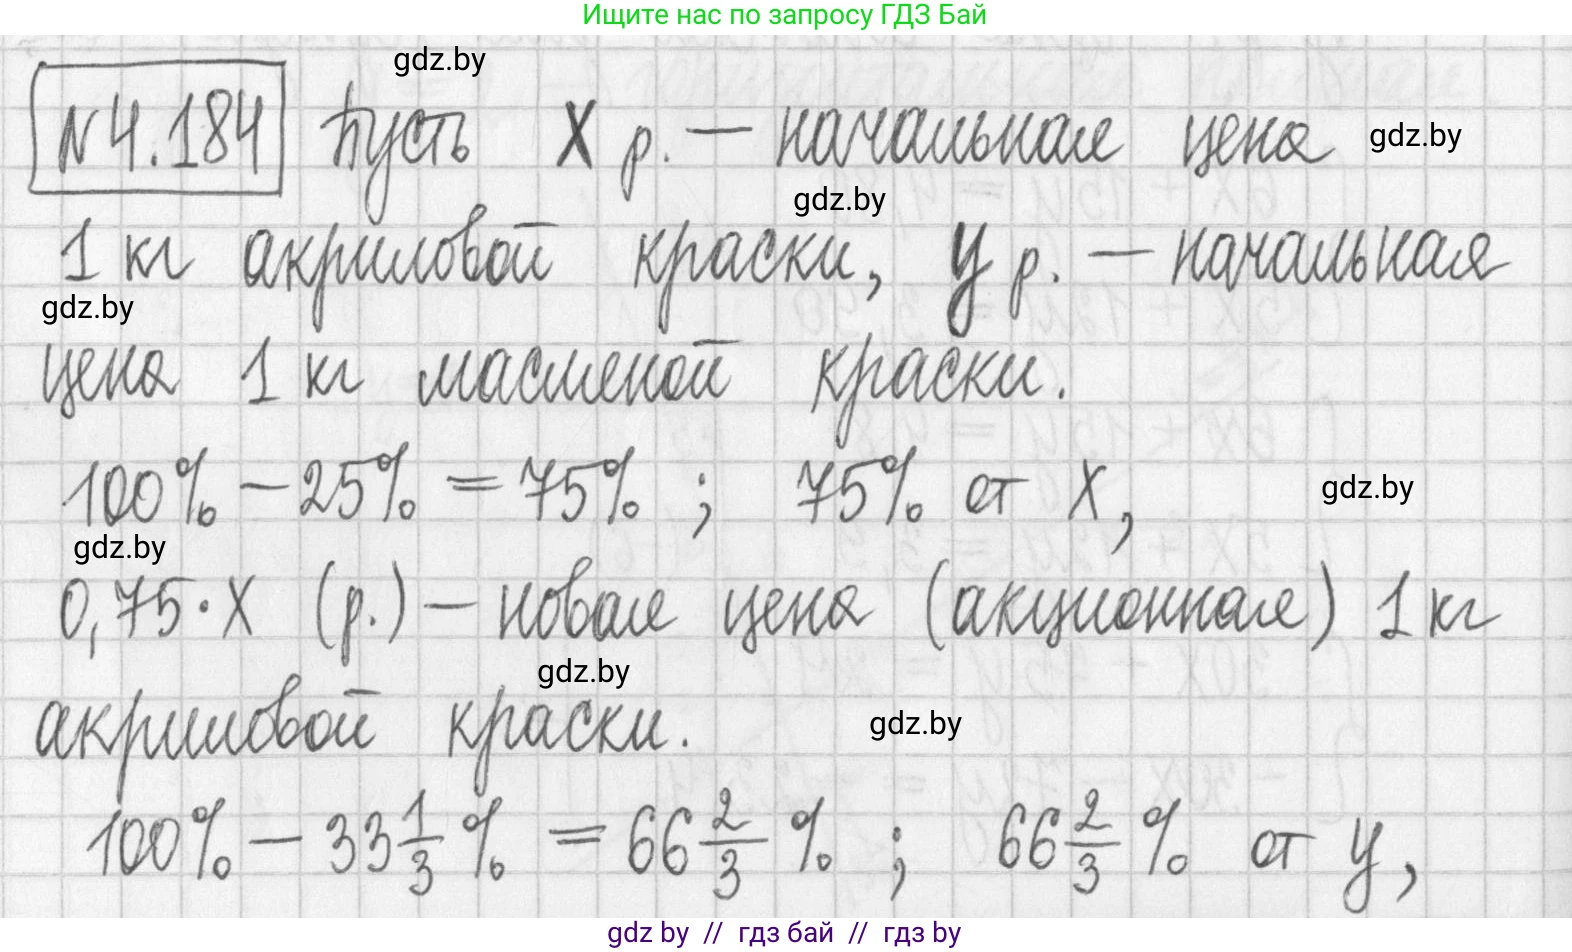 Ищите нас по запросу ГДЗ Бай
gdz.by
№4.184 Пусть x р. — начальная цена gdz.by
gdz.by
1 кг акриловой краски, y р. — начальная
gdz.by
цена 1 кг масленой краски.
100% – 25% = 75% ; 75% от x, gdz.by
gdz.by
0,75·x (р.) — новая цена (акционная) 1 кг
gdz.by
акриловой краски. gdz.by
100% – 33 1/3 % = 66 2/3 % ; 66 2/3 % от y,
gdz by // гдз бай // гдз by